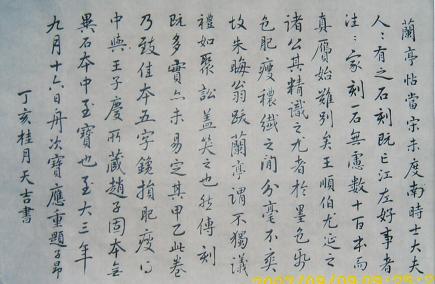 蘭亭帖當宋未度南時士大夫
人〻有之石刻既亡江左好事者
往〻家刻一石無慮數十百本而
真贋始難別矣王順伯尤延之
諸公其精識之尤者於墨色紙
色肥瘦穠纖之間分毫不爽
故朱晦翁跋蘭亭謂不獨議
禮如聚訟蓋笑之也然傳刻
既多實亦未易定其甲乙此卷
乃致佳本五字鑱損肥瘦得
中與王子慶所藏趙子固本無
異石本中至寶也至大三年
九月十六日舟次寶應重題子昂
丁亥桂月天吉書